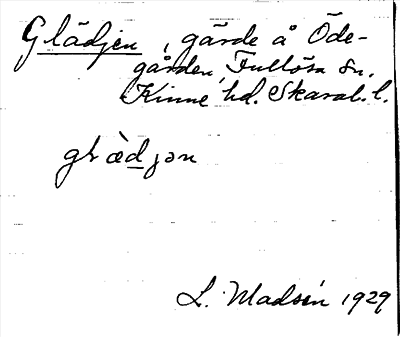 Glädjen, gärde å Öde-
gården, Fullösa sn.
Kinne hd. Skarab. l.
glæ̀djən
L. Madsén 1929